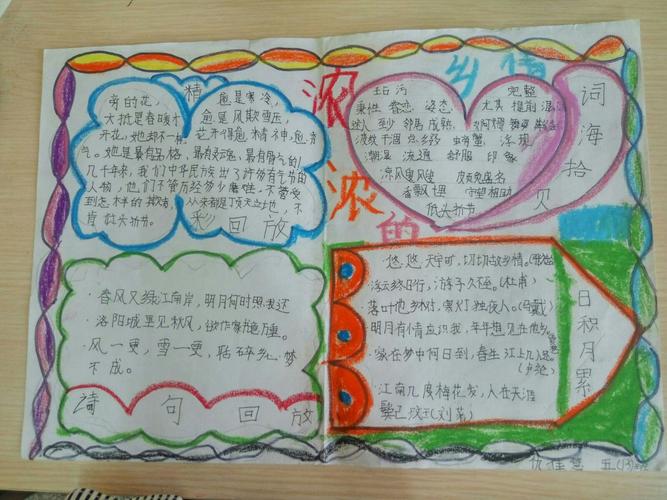 浓浓的乡情
精彩回放
旁的花，
大抵是春暖才
开花，她却不一样，
愈是寒冷，
愈是风欺雪压，
花开得愈精神，愈秀
气。她是最有品格、最有灵魂、最有骨气的！
几千年来，我们中华民族出了许多有气节的
人物，他们不管历经多少磨难，不管受
到怎样的欺凌，从来都是顶天立地，不
肯低头折节。
词海拾贝
玷污 完整
秉性 眷恋 姿态
尤其 提前
迷人 至少 邻居 成熟
波纹
潮湿 流通 舒服 印
凉风飕飕
香飘十里 守望相助
低头折节
诗句回放
·春风又绿江南岸，明月何时照我还
·洛阳城里见秋风，欲作家书意万重。
·风一更，雪一更，聒碎乡心梦
不成。
日积月累
·悠悠天宇旷，切切故乡情。
·浮云终日行，游子久不至。（杜甫）
·落叶他乡树，寒灯独夜人。（马戴）
·明月有情应识我，年年相见在他乡
·家在梦中何日到，春生江上几人还。
（卢纶）
·江南几度梅花发，人在天涯
鬓已斑（刘著）